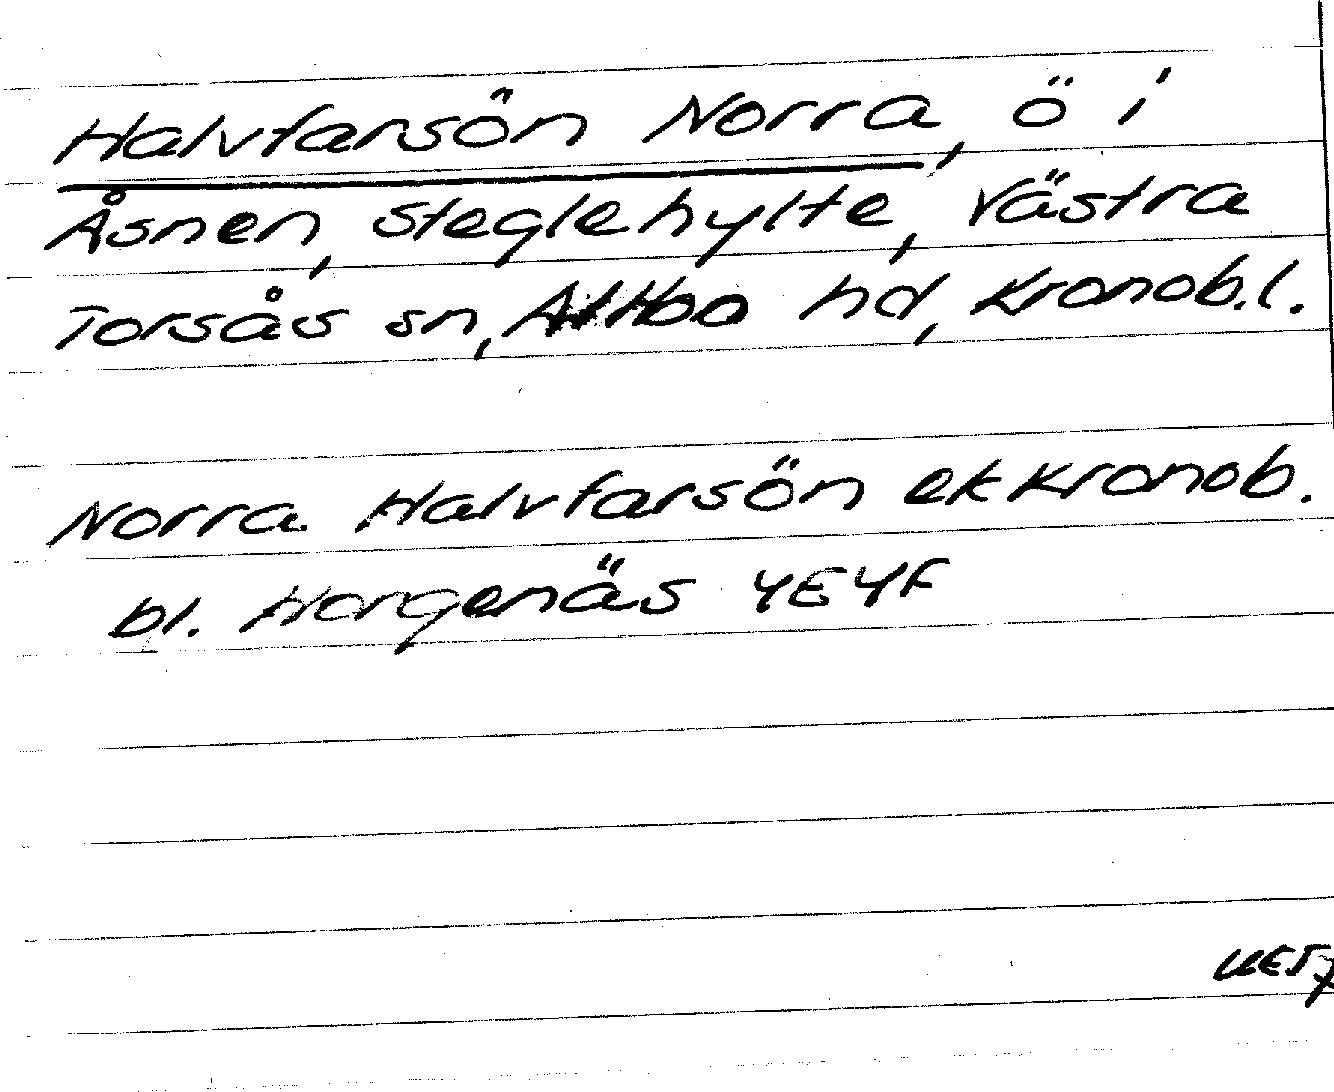 Halvfarsön Norra, ö i
Åsnen, Steglehylte, Västra
Torsås sn, Allbo hd, Kronob.l.
Norra Halvfarsön ek Kronob.
bl. Horgenäs 4E4F